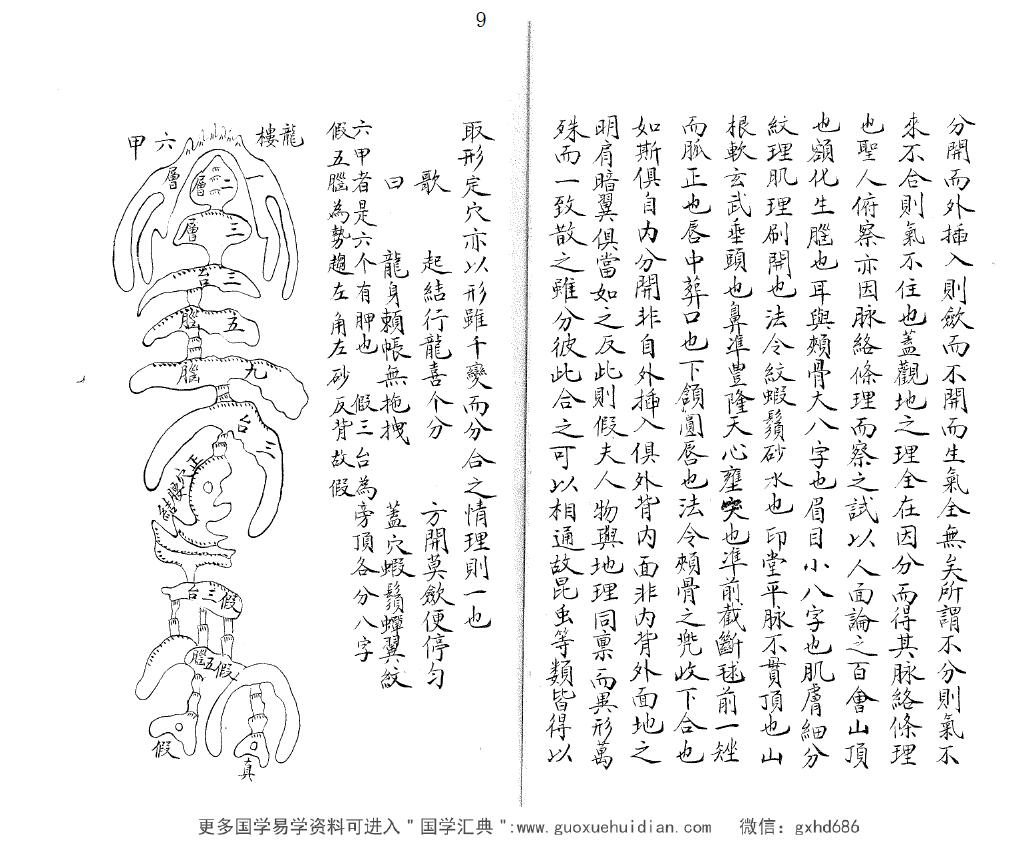 9
分開而外揷入則斂而不開而生氣全無矣所謂不分則氣不
來不合則氣不住也蓋觀地之理全在因分而得其脉絡條理
也聖人俯察亦因脉絡條理而察之試以人面論之百會山頂
也額化生腦也耳與頰骨大八字也眉目小八字也肌膚細分
紋理肌理刷開也法令紋蝦鬚砂水也印堂平脉不貫頂也山
根軟玄武垂頭也鼻準豊隆天心壅突也準前截斷毬前一矬
而脈正也唇中葬口也下頷圓唇也法令頰骨之兜收下合也
如斯俱自内分開非自外揷入俱外背内面非内背外面地之
明肩暗翼俱當如之反此則假夫人物與地理同禀而異形萬
殊而一致散之雖分彼此合之可以相通故昆虫等類皆得以
取形定穴亦以形雖千變而分合之情理則一也
歌 起結行龍喜个分 方開莫斂便停匀
曰 龍身頼帳無拖拽 蓋穴蝦鬚蟬翼紋
六甲者是六个有胛也 假三台為旁頂各分八字
假五腦為勢趨左角左砂反背故假
龍樓
六甲
一層
二層
三層
三台
五腦
九腦
三台
正穴腰結
假三台
假五腦
假
真
更多国学易学资料可进入＂国学汇典＂:www.guoxuehuidian.com 微信：gxhd686